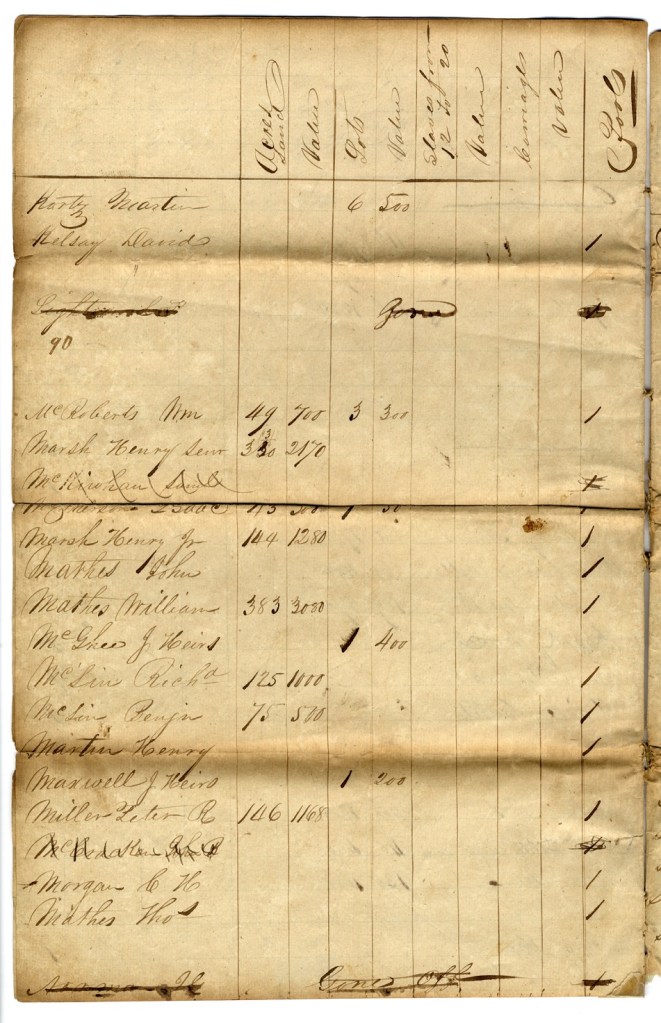 Acres Land Value Lots Value Slaves from 12 to 20 Value Carriages Value Pools
Kortz Martin 6 500
Kelsay David 1
Gone 1
90
McRoberts Wm 49 700 3 300 1
Marsh Henry Senr 2170
1
Isaac 1
Marsh Henry Jr 144 1280 1
Mathes John 1
Mathes William 383 3080 1
McGhee J Heirs 1 400
McLin Richd 125 1000 1
McLin Benjn 75 500 1
Martin Henry 1
Maxwell J Heirs 1 200
Miller Peter R 146 1168 1
1
Morgan C H 1
Mathes Thos 1
Gone Off 1